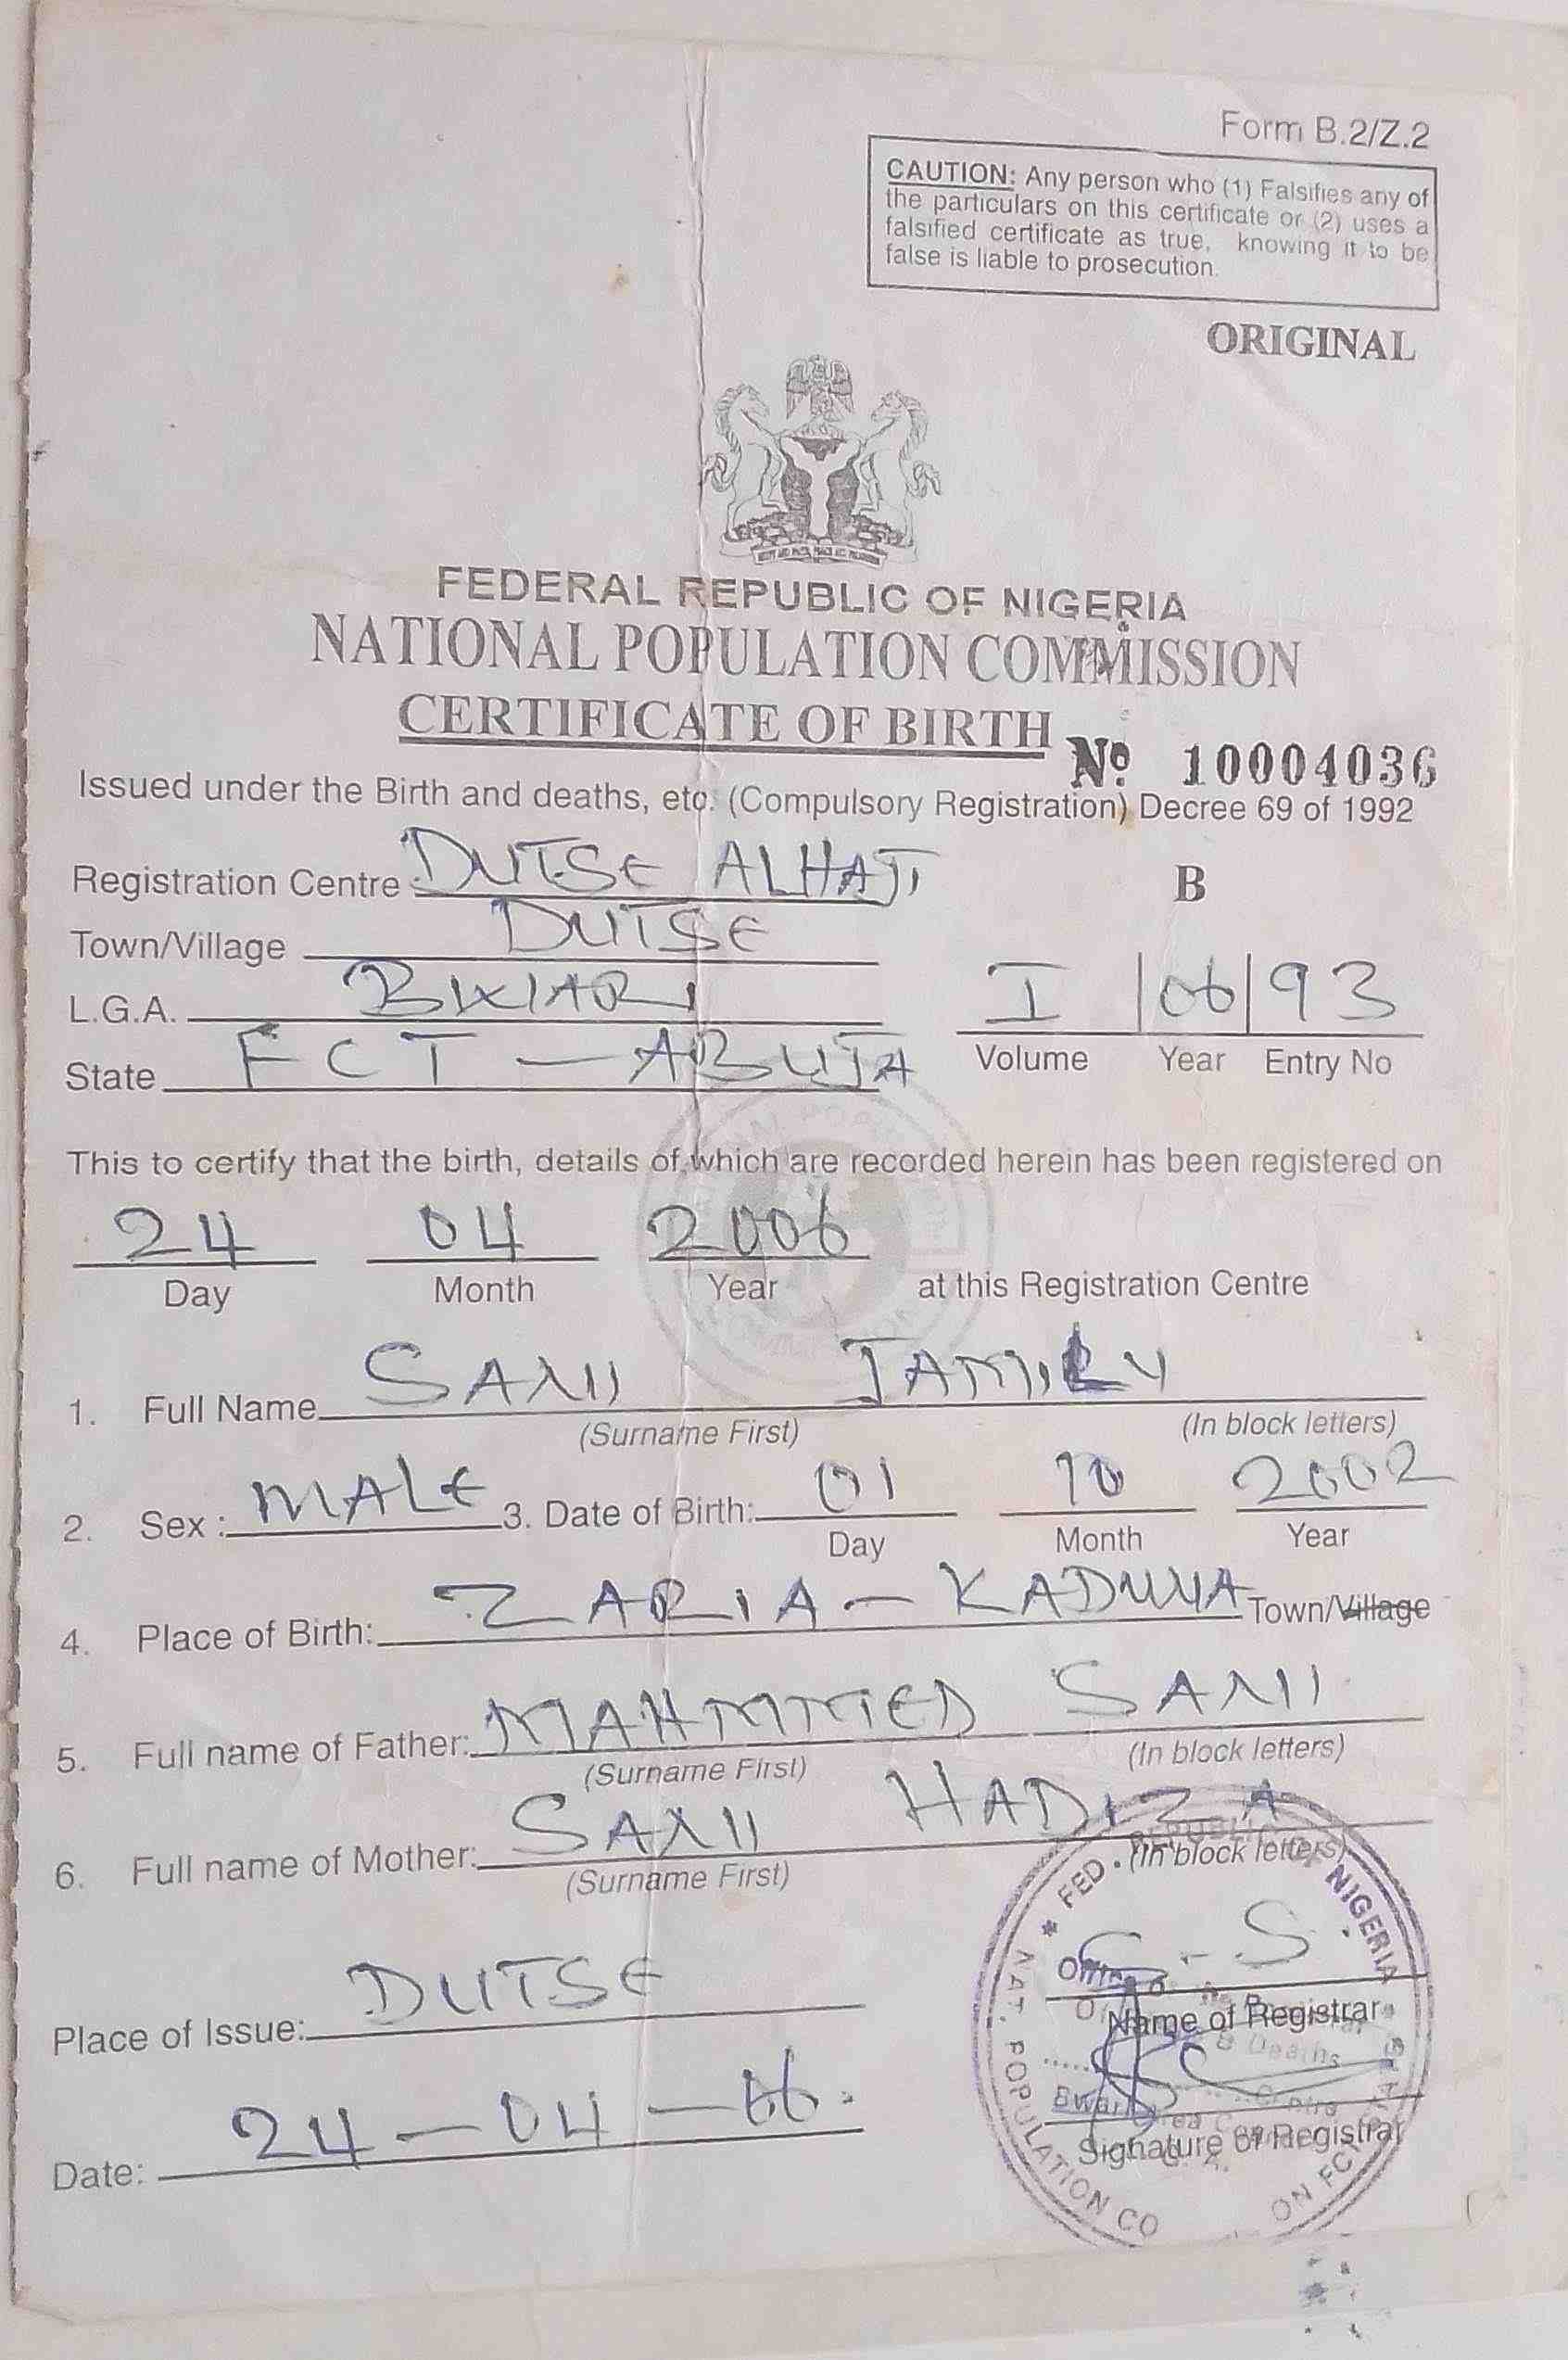 Form B.2/Z.2
CAUTION: Any person who (1) Falsifies any of
the particulars on this certificate or (2) uses a
falsified certificate as true, knowing it to be
false is liable to prosecution.
ORIGINAL
FEDERAL REPUBLIC OF NIGERIA
NATIONAL POPULATION COMMISSION
CERTIFICATE OF BIRTH
No. 10004036
Issued under the Birth and deaths, etc. (Compulsory Registration) Decree 69 of 1992
Registration Centre DUTSE ALHAJI
B
Town/Village DUTSE
L.G.A. BWARI
I / 06 / 93
Volume Year Entry No
State FCT - ABUJA
This to certify that the birth, details of which are recorded herein has been registered on
24 04 2006
Day Month Year at this Registration Centre
1. Full Name SANI JAMILU
(Surname First) (In block letters)
2. Sex : MALE 3. Date of Birth: 01 10 2002
Day Month Year
4. Place of Birth: ZARIA - KADUNA Town/Village
5. Full name of Father: MAHMMED SANI
(Surname First) (In block letters)
6. Full name of Mother: SANI HADIZA
(Surname First) (In block letters)
FED. REPUBLIC OF NIGERIA
NAT. POPULATION CO
ON FCT
Place of Issue: DUTSE
S.
Name of Registrar
& Deaths
Date: 24-04-06.
Signature of Registrar